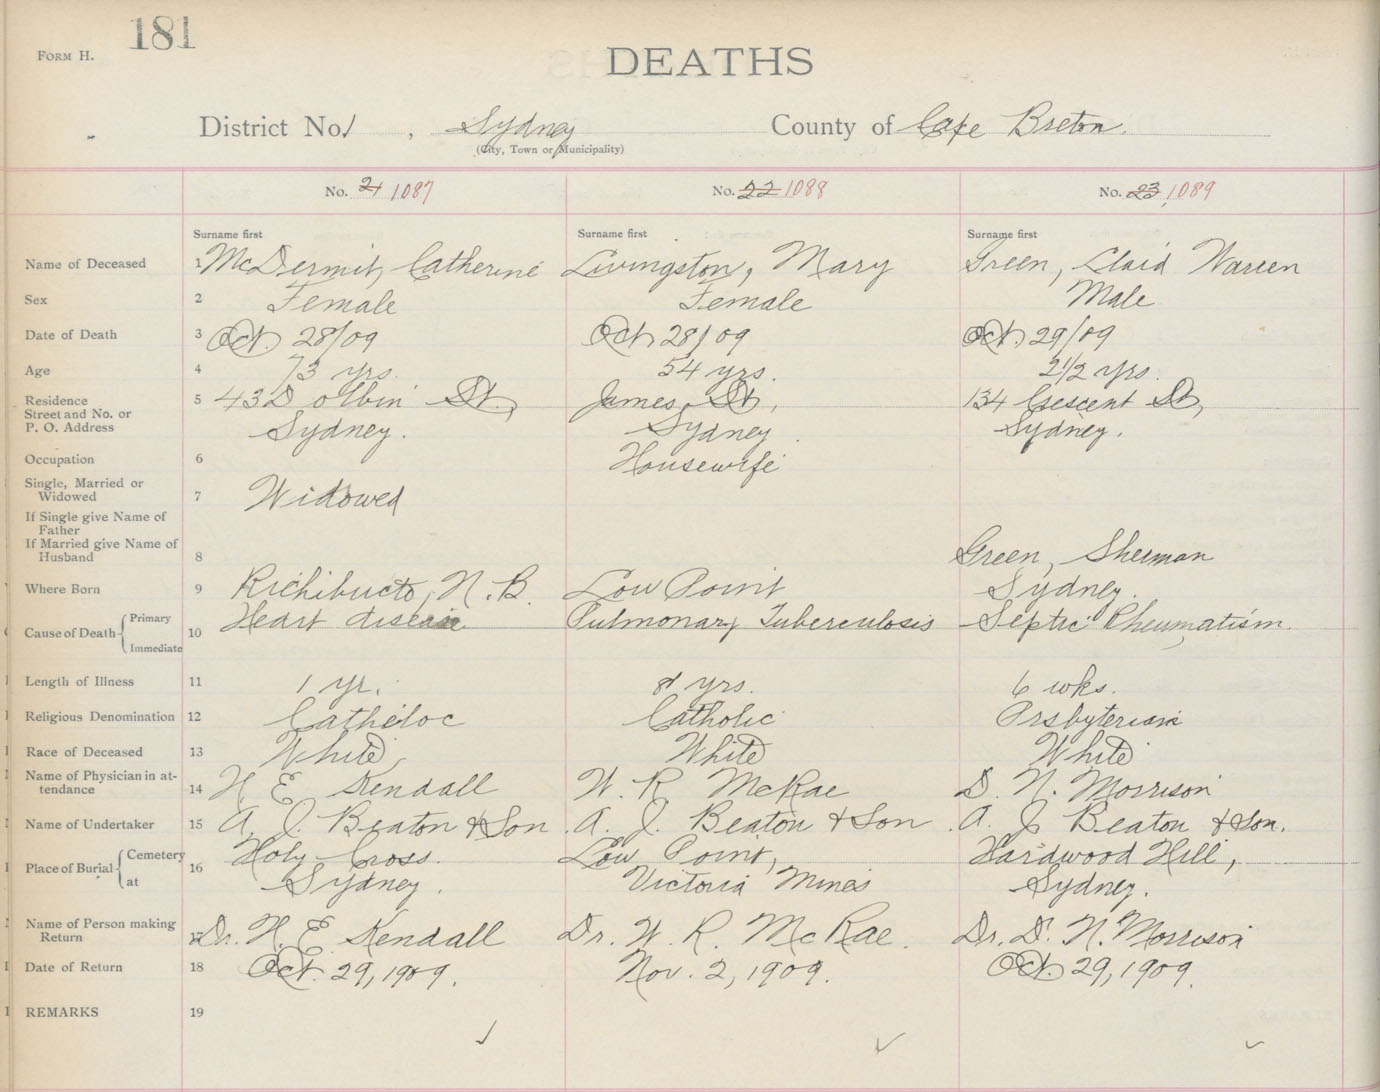 181
FORM H.
DEATHS
District No. 1, Sydney County of Cape Breton.
(City, Town or Municipality)
No. 21 1087 No. 22 1088 No. 23 1089
Surname first Surname first Surname first
Name of Deceased 1 McDermit, Catherine Livingston, Mary Green, Claid Warren
Sex 2 Female Female Male
Date of Death 3 Oct. 28/09 Oct. 28/09 Oct. 29/09
Age 4 73 yrs. 54 yrs. 2 1/2 yrs.
Residence 5 43 Dolbin St., James St., 134 Crescent St,
Street and No. or
P. O. Address Sydney. Sydney. Sydney.
Occupation 6 Housewife
Single, Married or
Widowed 7 Widowed
If Single give Name of
Father
If Married give Name of
Husband 8 Green, Sherman
Where Born 9 Richibucto, N. B. Low Point Sydney.
Cause of Death { Primary 10 Heart disease Pulmonary Tuberculosis Septic Rheumatism.
Immediate
Length of Illness 11 1 yr. yrs. 6 wks.
Religious Denomination 12 Catheloc Catholic Prsbyterian
Race of Deceased 13 White White White
Name of Physician in at-
tendance 14 H. E. Kendall W. R. McRae D. N. Morrison
Name of Undertaker 15 A. J. Beaton & Son A. J. Beaton & Son A. J. Beaton & Son.
Place of Burial { Cemetery 16 Holy Cross. Low Point, Hardwood Hill,
at Sydney. Victoria Mines Sydney.
Name of Person making
Return 17 Dr. H. E. Kendall Dr. W. R. McRae. Dr. D. N. Morrison
Date of Return 18 Oct. 29, 1909. Nov. 2, 1909. Oct. 29, 1909.
REMARKS 19